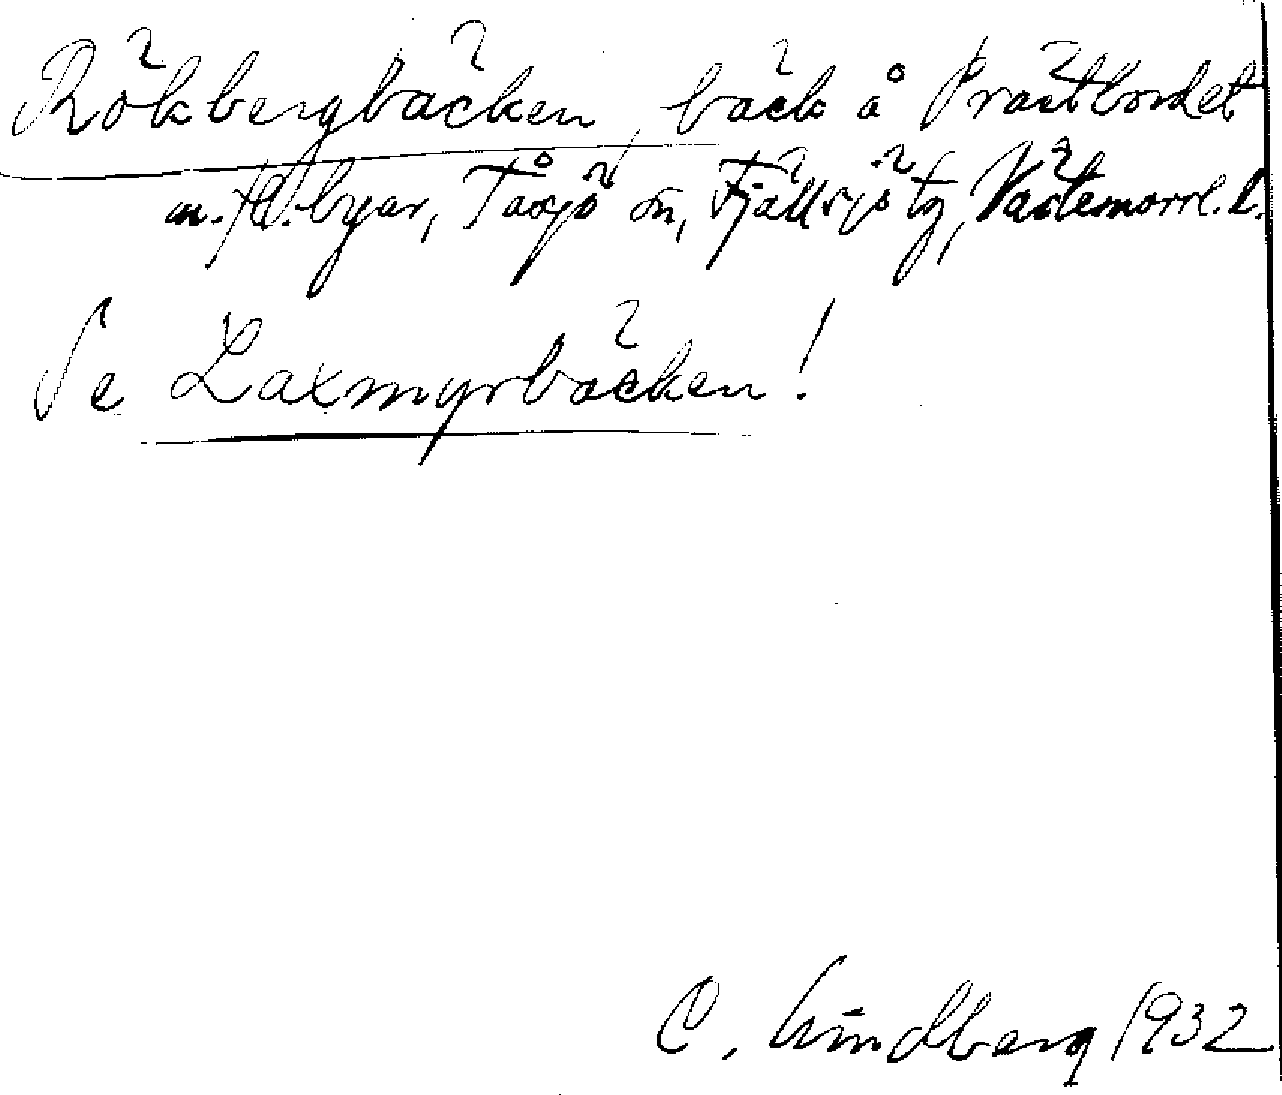 Rökbergbäcken, bäck å Prästbordet
m. fl. byar, Tåsjö sn, Fjällsjö tg, Västernorrl. l.
Se Laxmyrbäcken!
C. Lindberg 1932